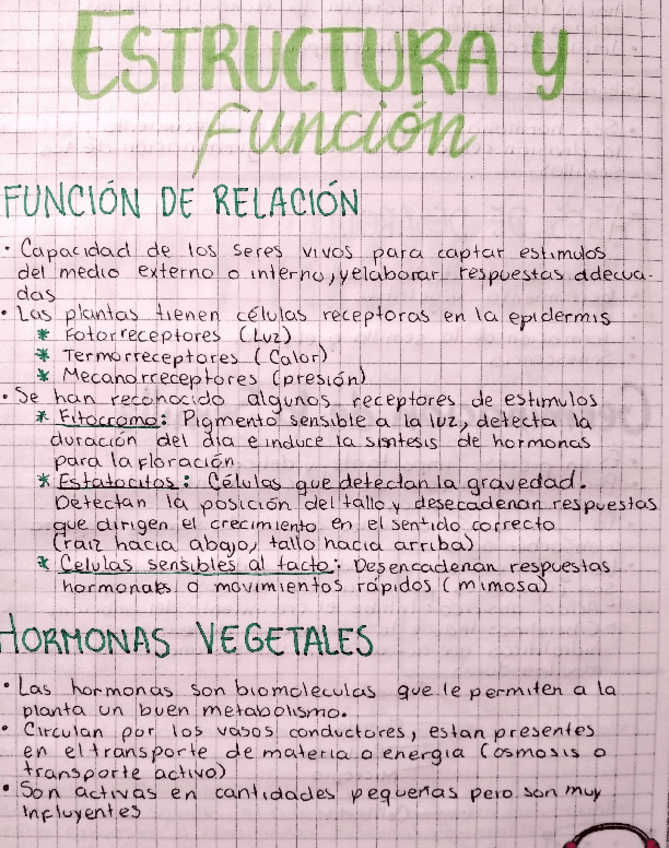 ESTRUCTURA y
Función
FUNCIÓN DE RELACIÓN
• Capacidad de los seres vivos para captar estimulos
del medio externo o interno, y elaborar respuestas adecua-
das
• Las plantas tienen células receptoras en la epidermis
* Fotorreceptores (Luz)
* Termorreceptores (Calor)
* Mecanorreceptores (presión)
• Se han reconocido algunos receptores de estimulos
* Fitocromo: Pigmento sensible a la luz, detecta la
duración del día e induce la sintesis de hormonas
para la floración.
* Estatocitos: Células que detectan la gravedad.
Detectan la posición del tallo y desecadenan respuestas
que dirigen el crecimiento en el sentido correcto
(raiz hacia abajo, tallo hacia arriba)
* Celulas sensibles al tacto: Desencadenan respuestas
hormonales o movimientos rápidos (mimosa)
HORMONAS VEGETALES
• Las hormonas son biomoleculas que le permiten a la
planta un buen metabolismo.
• Circulan por los vasos conductores, estan presentes
en el transporte de materia o energia (osmosis o
transporte activo)
• Son activas en cantidades pequeñas pero son muy
influyentes